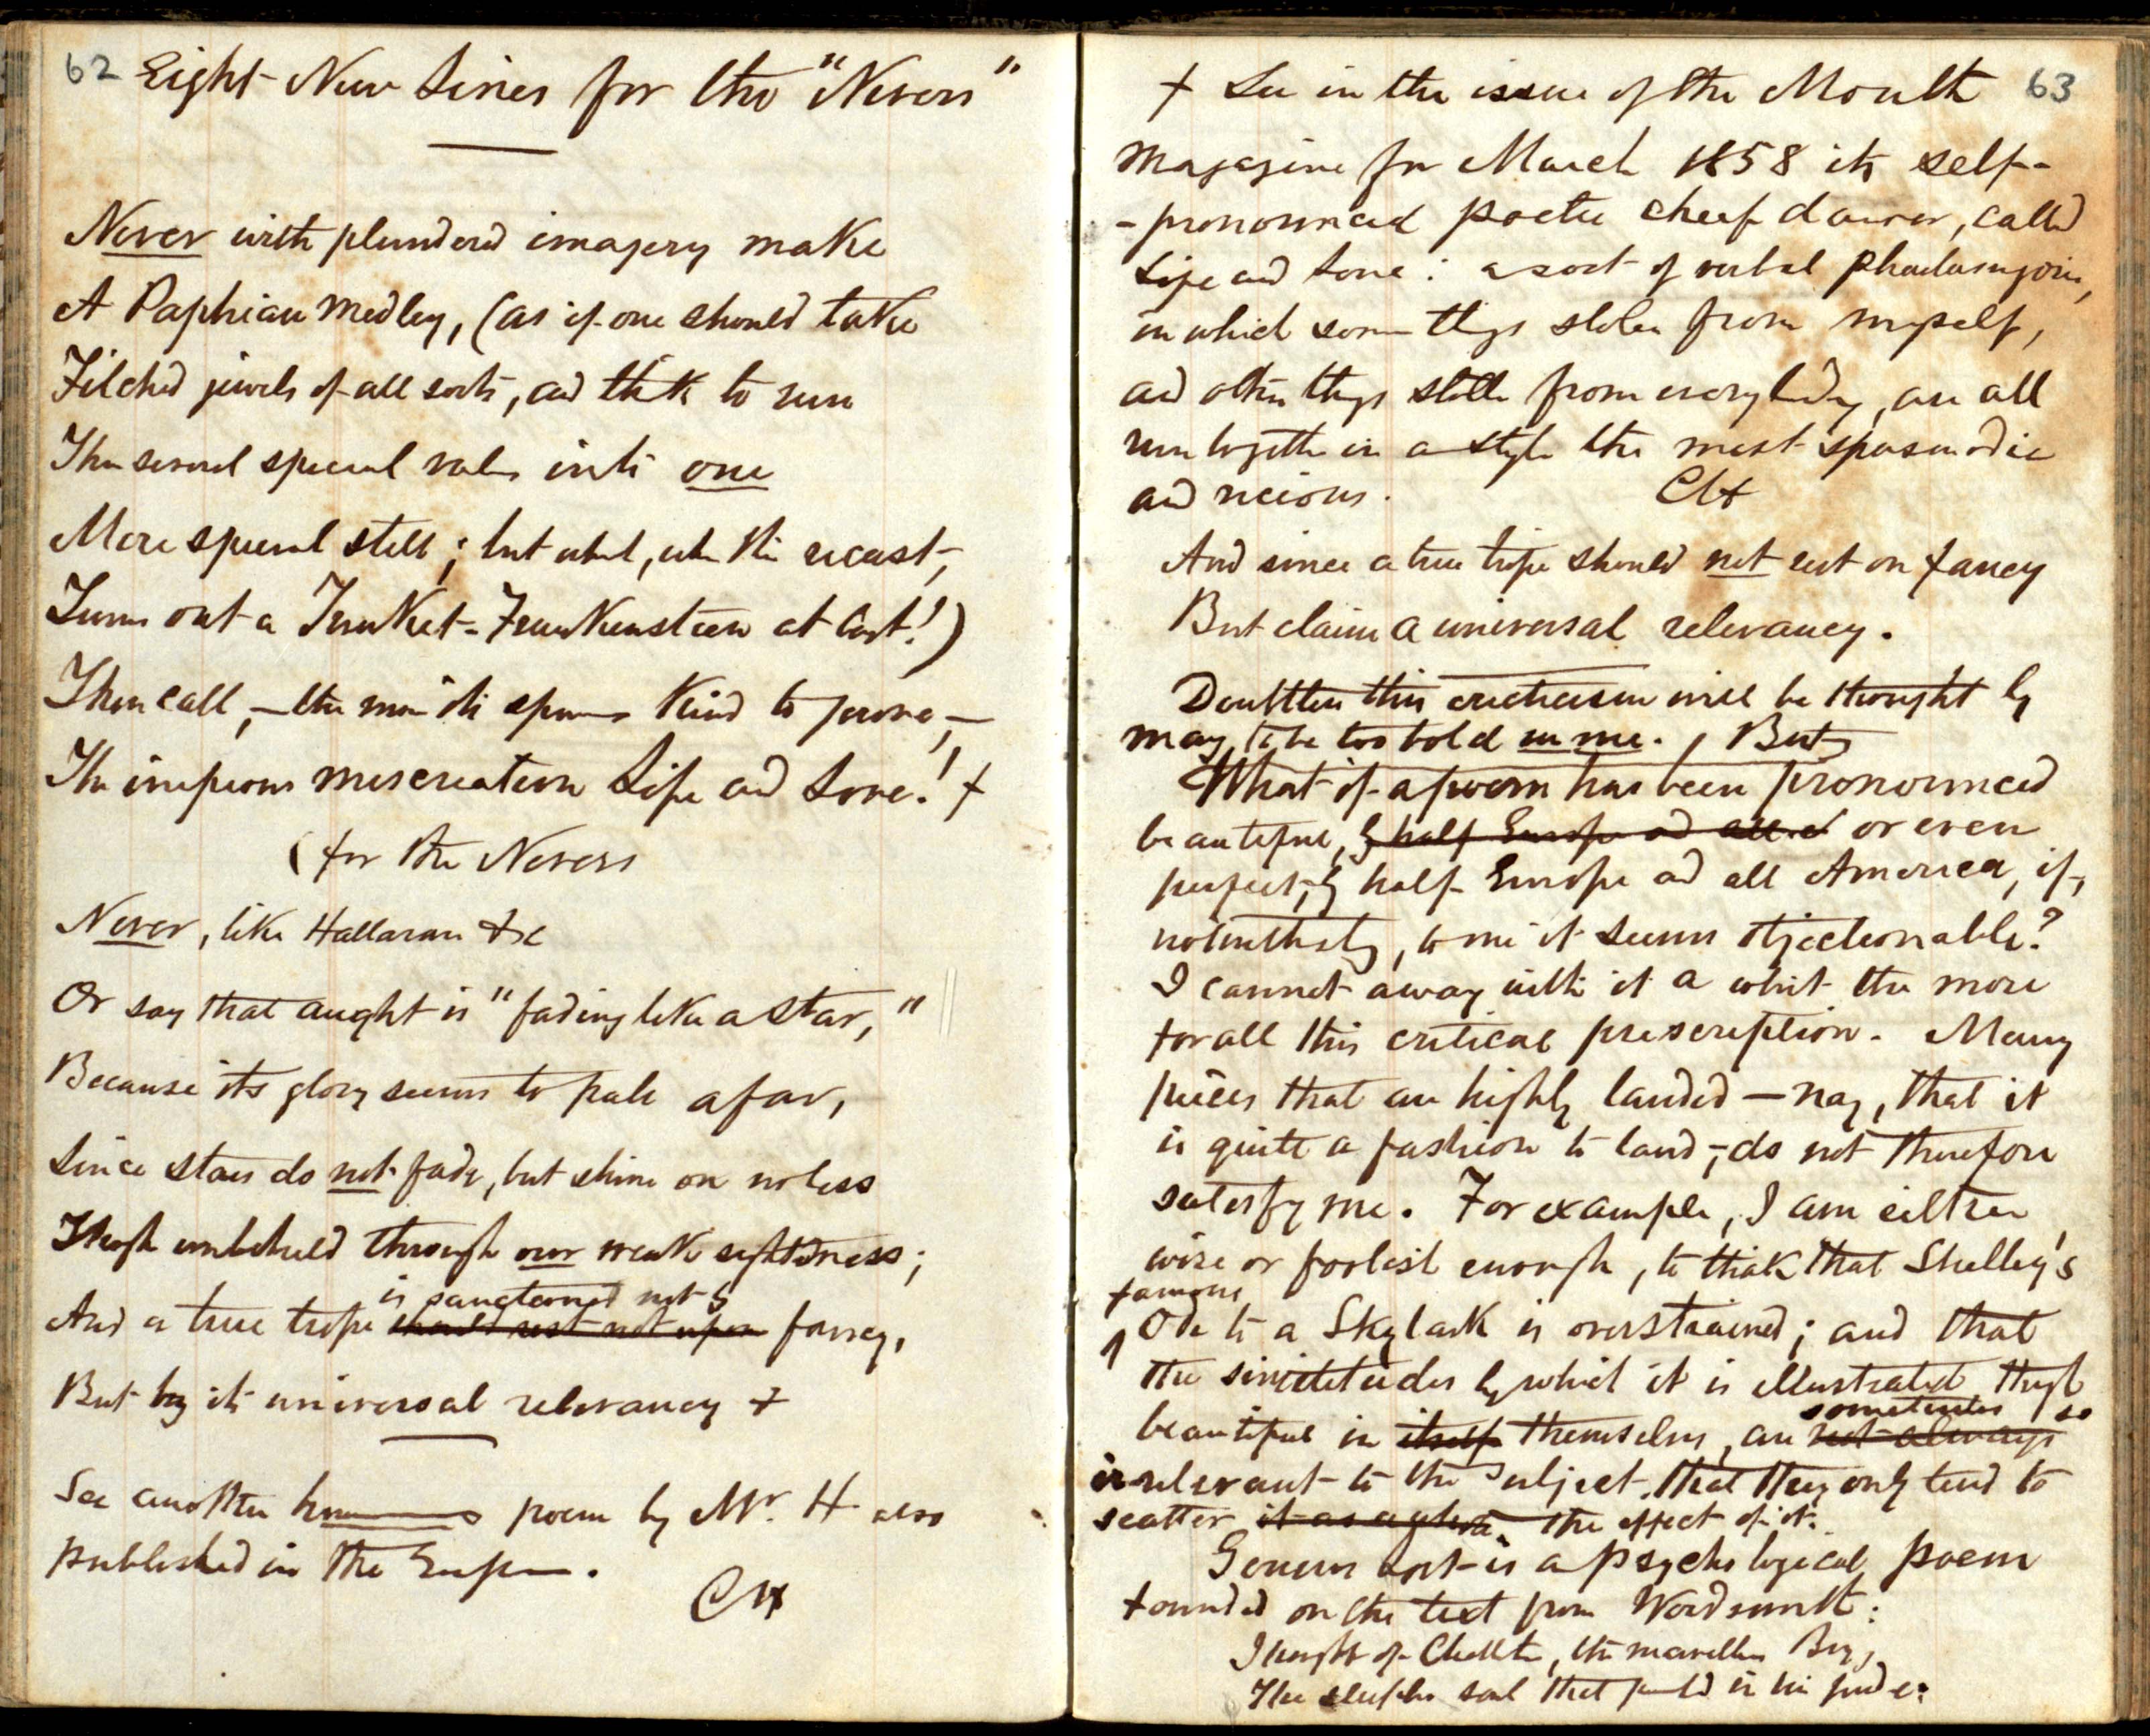 62 Eight New Lines for the "Nevers"
Never with plunderd imagery make
A Paphian medley, (as if one should take
Filched jewels of all sorts, and think to run
Their several special values into one
More special still; but what, when this recast,
Turns out a Trinket-Frankenstein at last!)
Then call, – the more its spurious kind to prove, –
The impious miscreation Life and Love! †
(for the Nevers
Never, like Hallaran &c
Or say that aught is "fading like a star,"
Because its glory seems to pale afar,
Since stars do not fade, but shine on no less
Though unbeheld through our weak sightedness;
is sanctioned not by
And a true trope should rest not upon fancy,
But by its universal relevancy +
See another humorous poem by Mr. H also
published in the Empire.
CH
† See in the issue of the Month 63
Magazine for March 1858 its self-
-pronounced poetic cheef dauver, called
Life and Love: a sort of verbal phantasmagoria,
in which some things stolen from myself,
and other things stolen from everybody, are all
run together in a style the most spasmodic
and vicious. CH
And since a true trope should not rest on fancy
But claim a universal relevancy.
Doubtless this criticism will be thought by
many to be too bold in me. But
What if a poem has been pronounced
beautiful, by half Europe and all or even
perfect, by half Europe and all America, if,
notwithstg, to me it seems objectionable?
I cannot away with it a whit the more
for all this critical prescription. Many
pieces that are highly lauded – nay, that it
is quite a fashion to laud, – do not therefore
satisfy me. For example, I am either
wise or foolish enough, to think that Shelley's
famous
Ode to a Skylark is overstrained; and that
the similitudes by which it is illustrated, though
sometimes so
beautiful in itself themselves, are not always
irrelevant to the subject, that they only tend to
scatter it as a whole. the effect of it.
Genius Lost is a psychological poem
founded on the text from Wordsworth:
I thought of Chatterton, the marvellous Boy,
The sleepless soul that perished in his pride: